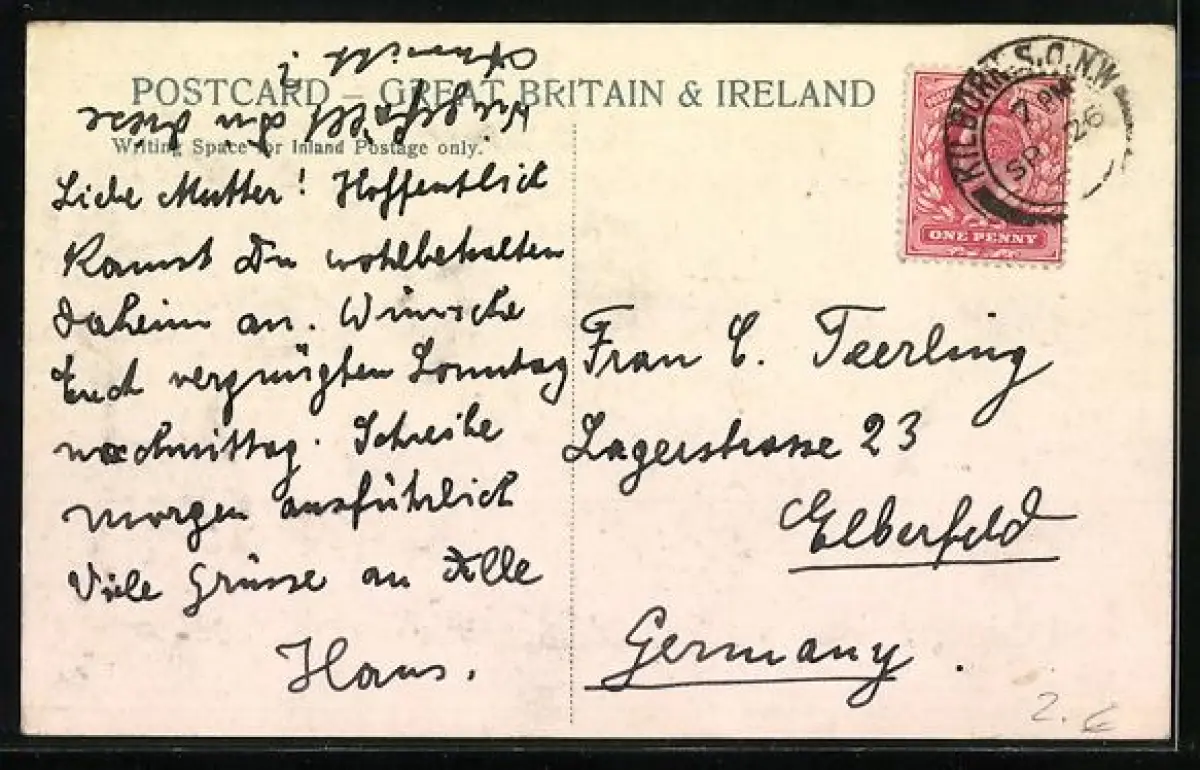 POSTCARD – GREAT BRITAIN & IRELAND
Writing Space for Inland Postage only.
Wie gefällt dir diese
Ansicht?
Liebe Mutter! Hoffentlich
kamst Du wohlbehalten
daheim an. Wünsche
Euch vergnügten Sonntag
nachmittag. Schreibe
morgen ausführlich
Viele Grüsse an Alle
Hans.
KILBURN S.O.N.W.
7 PM
SP 26
ONE PENNY
Frau C. Teerling
Lagerstrasse 23
Elberfeld
Germany.
2.€